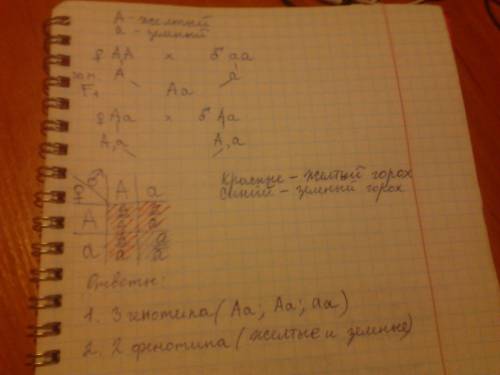 A - желтый
a - зеленый
♀ AA x ♂ aa
гам. A a
F1 Aa
♀ Aa x ♂ Aa
A,a A,a
A a
A
a a a
Красные - желтый горох
Синий - зеленый горох
Ответы:
1. 3 генотипа (Aa; Aa; aa)
2. 2 фенотипа (желтые и зеленые)